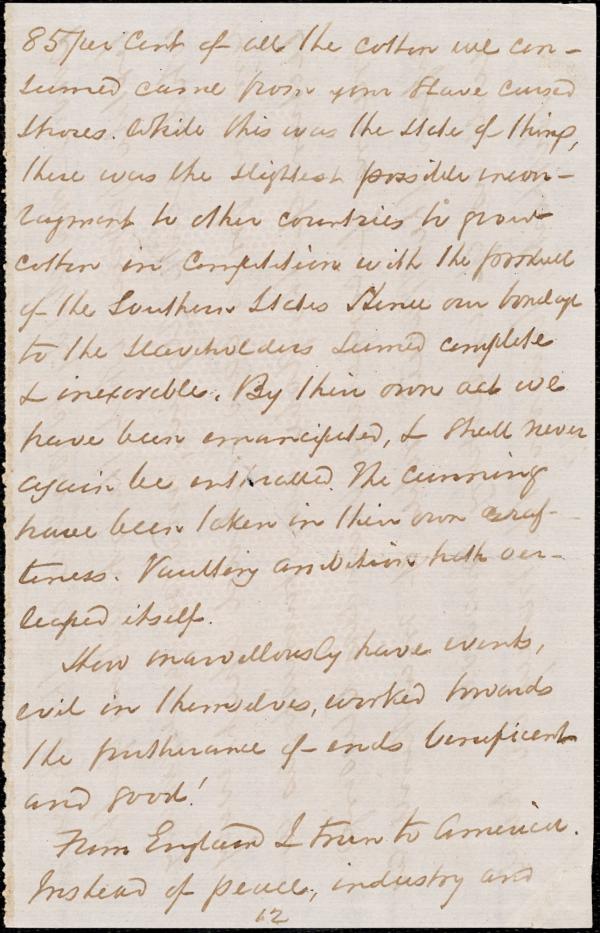 85 per cent of all the cotton we con-
sumed came from your slave cursed
shores. While this was the state of things,
there was the slightest possible encou-
ragment to other countries to grow
cotton in competition with the product
of the Southern States Hence our bondage
to the slaveholders seemed complete
& inexorable. By their own act we
have been emancipated, & shall never
again be enthralled. The cunning
have been taken in their own craf-
tiness. Vaulting ambition hath over-
leaped itself.
How marvellously have events,
evil in themselves, worked towards
the furtherance of ends beneficent
and good!
From England I turn to America.
Instead of peace, industry and
12